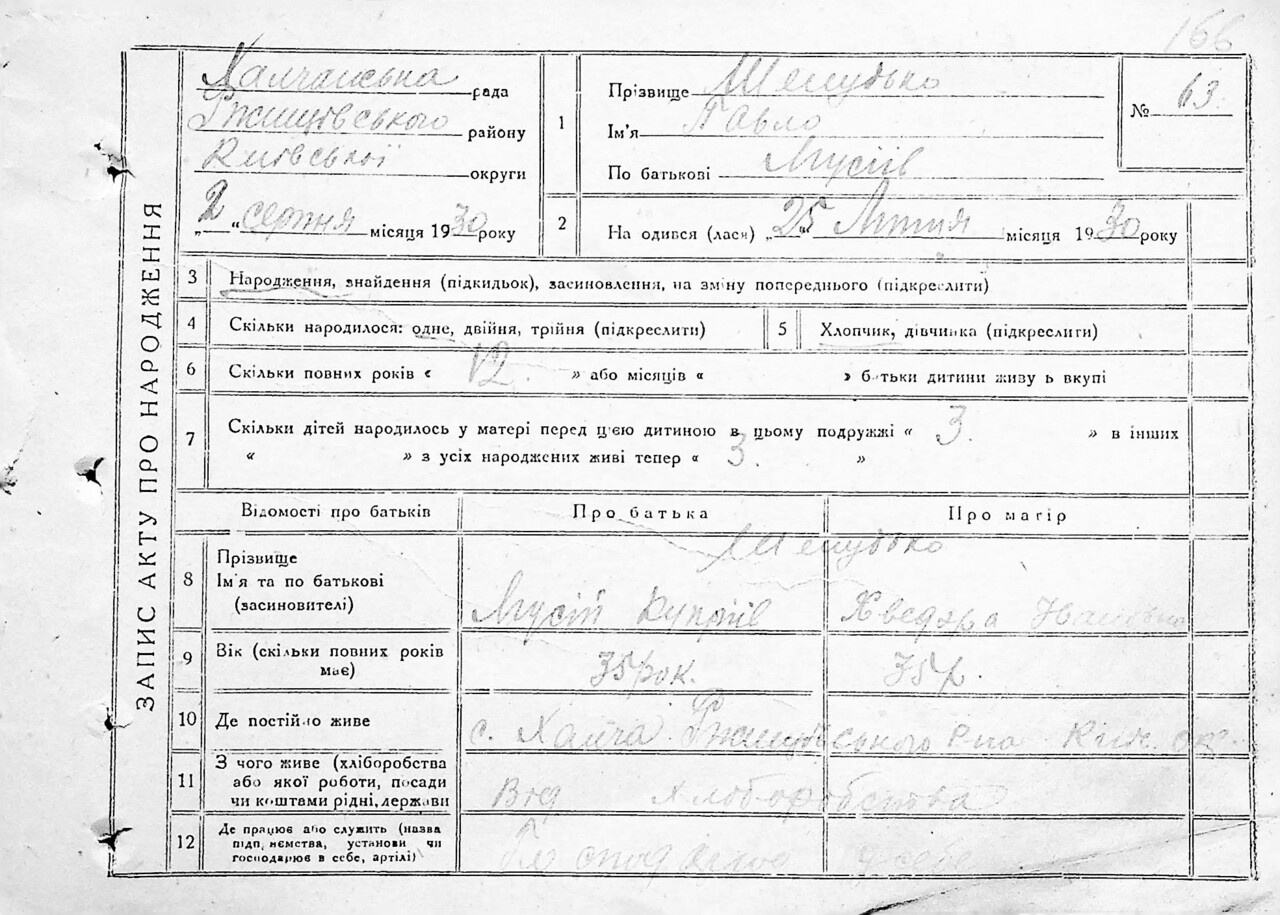 166
ЗАПИС АКТУ ПРО НАРОДЖЕННЯ
Халчанська рада
Ржищівського району
Київської округи
„2“ серпня місяця 1930 року
1
Прізвище Шелудько
Ім'я Павло
По батькові Мусіїв
№ 63.
2
На одився (лася) „25“ Липня місяця 1930 року
3 Народження, знайдення (підкидьок), засиновлення, на зміну попереднього (підкреслити)
4 Скільки народилося: одне, двійня, трійня (підкреслити)
5 Хлопчик, дівчинка (підкреслити)
6 Скільки повних років « 12. » або місяців « » батьки дитини живу ь вкупі
7 Скільки дітей народилось у матері перед цією дитиною в цьому подружжі « 3. » в інших
« » з усіх народжених живі тепер « 3. »
Відомості про батьків Про батька Про матір
8 Прізвище
Ім'я та по батькові
(засиновителі)
Шелудько
Мусій Купріїв Хведора Іванівна
9 Вік (скільки повних років
має)
35 рок. 35 р.
10 Де постійно живе
с. Халча Ржищівського Р-на Київ. окр.
11 З чого живе (хліборобства
або якої роботи, посади
чи коштами рідні, держави
Від хлоборобства
12 Де працює або служить (назва
підп, иємства, установи чи
господарює в себе, артілі)